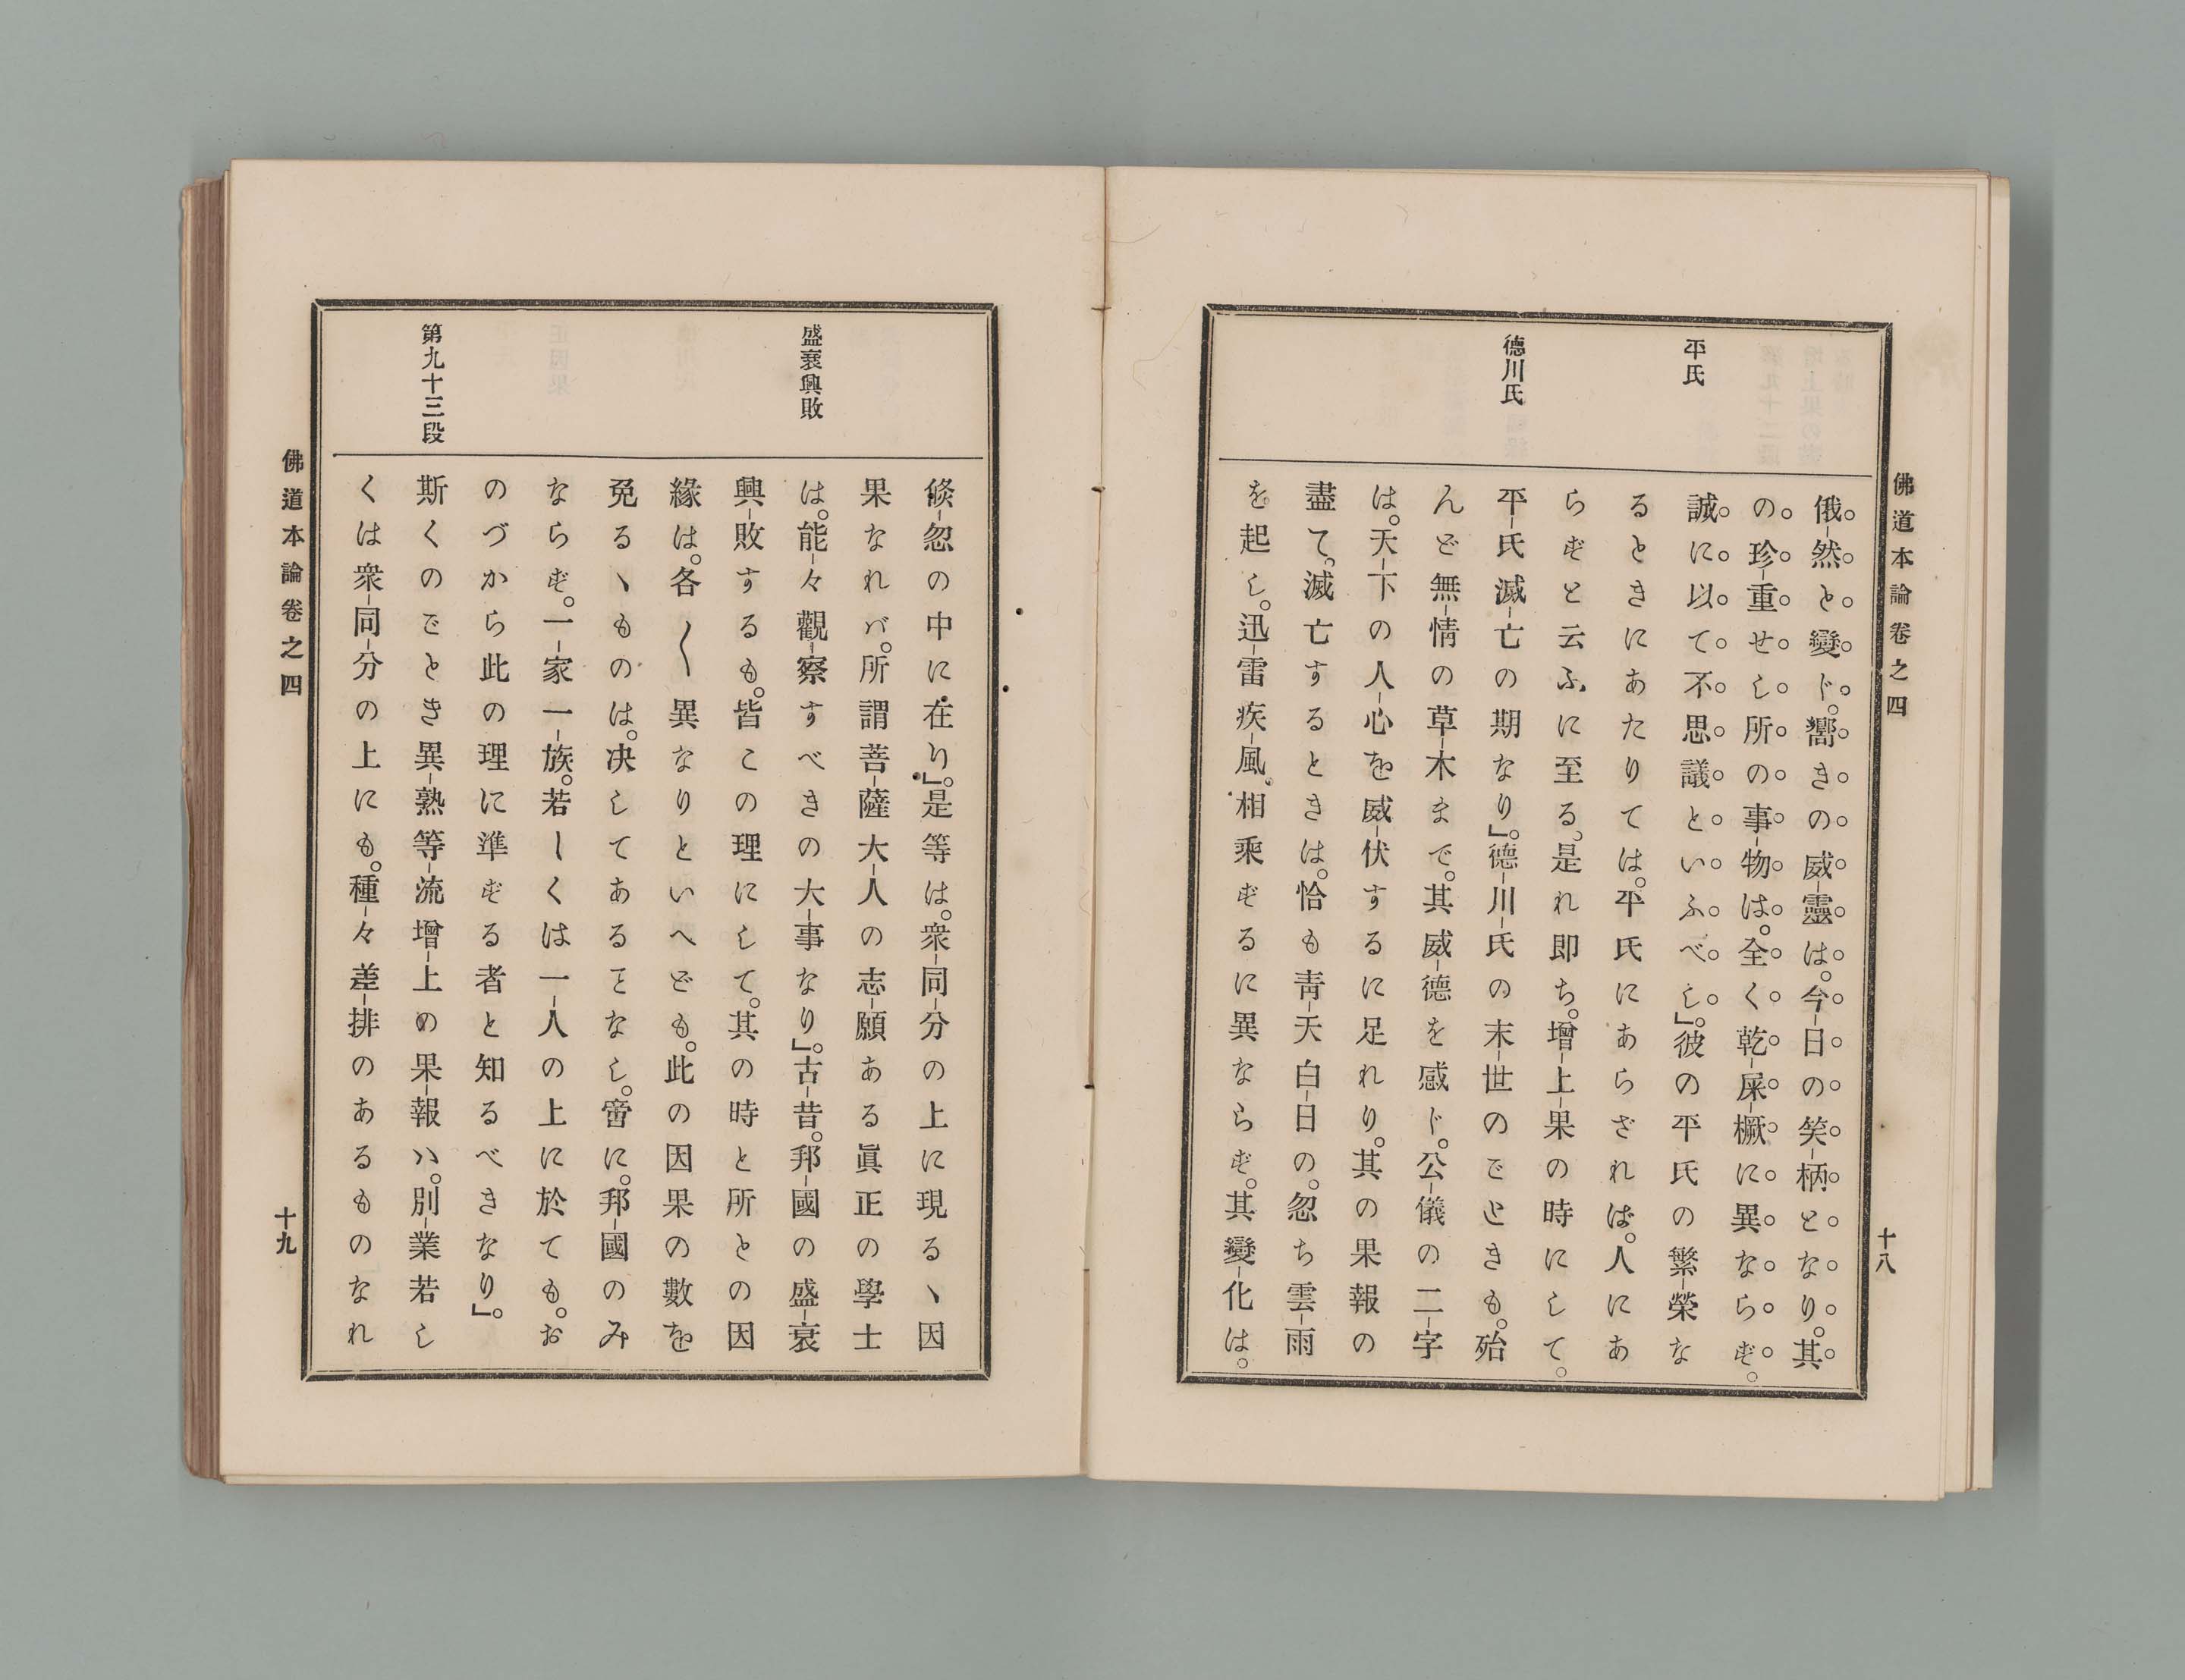 佛道本論卷之四
十八
平氏
德川氏
俄然と變ド。嚮きの威靈は。今日の笑柄となり。其
の珍重せし所の事物は。全く乾屎橛に異ならず。
誠に以て不思議といふべし」。彼の平氏の繁榮な
るときにあたりては。平氏にあらざれば。人にあ
らずと云ふに至る。是れ即ち。增上果の時にして。
平氏滅亡の期なり」。德川氏の末世のごときも。殆
んど無情の草木まで。其威德を感ド。公儀の二字
は。天下の人心を威伏するに足れり。其の果報の
盡て。滅亡するときは。恰も靑天白日の。忽ち雲雨
を起し。迅雷疾風。相乘ずるに異ならず。其變化は。
盛衰興敗
第九十三段
倐忽の中に在り」。是等は。衆同分の上に現るヽ因
果なれバ。所謂菩薩大人の志願ある眞正の學士
は。能々觀察すべきの大事なり」。古昔。邦國の盛衰
興敗するも。皆この理にして。其の時と所との因
緣は。各〱異なりといへども。此の因果の數を
免るヽものは。决してあるヿなし。啻に。邦國のみ
ならず。一家一族。若しくは一人の上に於ても。お
のづから此の理に準ずる者と知るべきなり」。
斯くのごとき異熟等流增上の果報ハ。別業若し
くは衆同分の上にも。種々差排のあるものなれ
佛道本論卷之四
十九